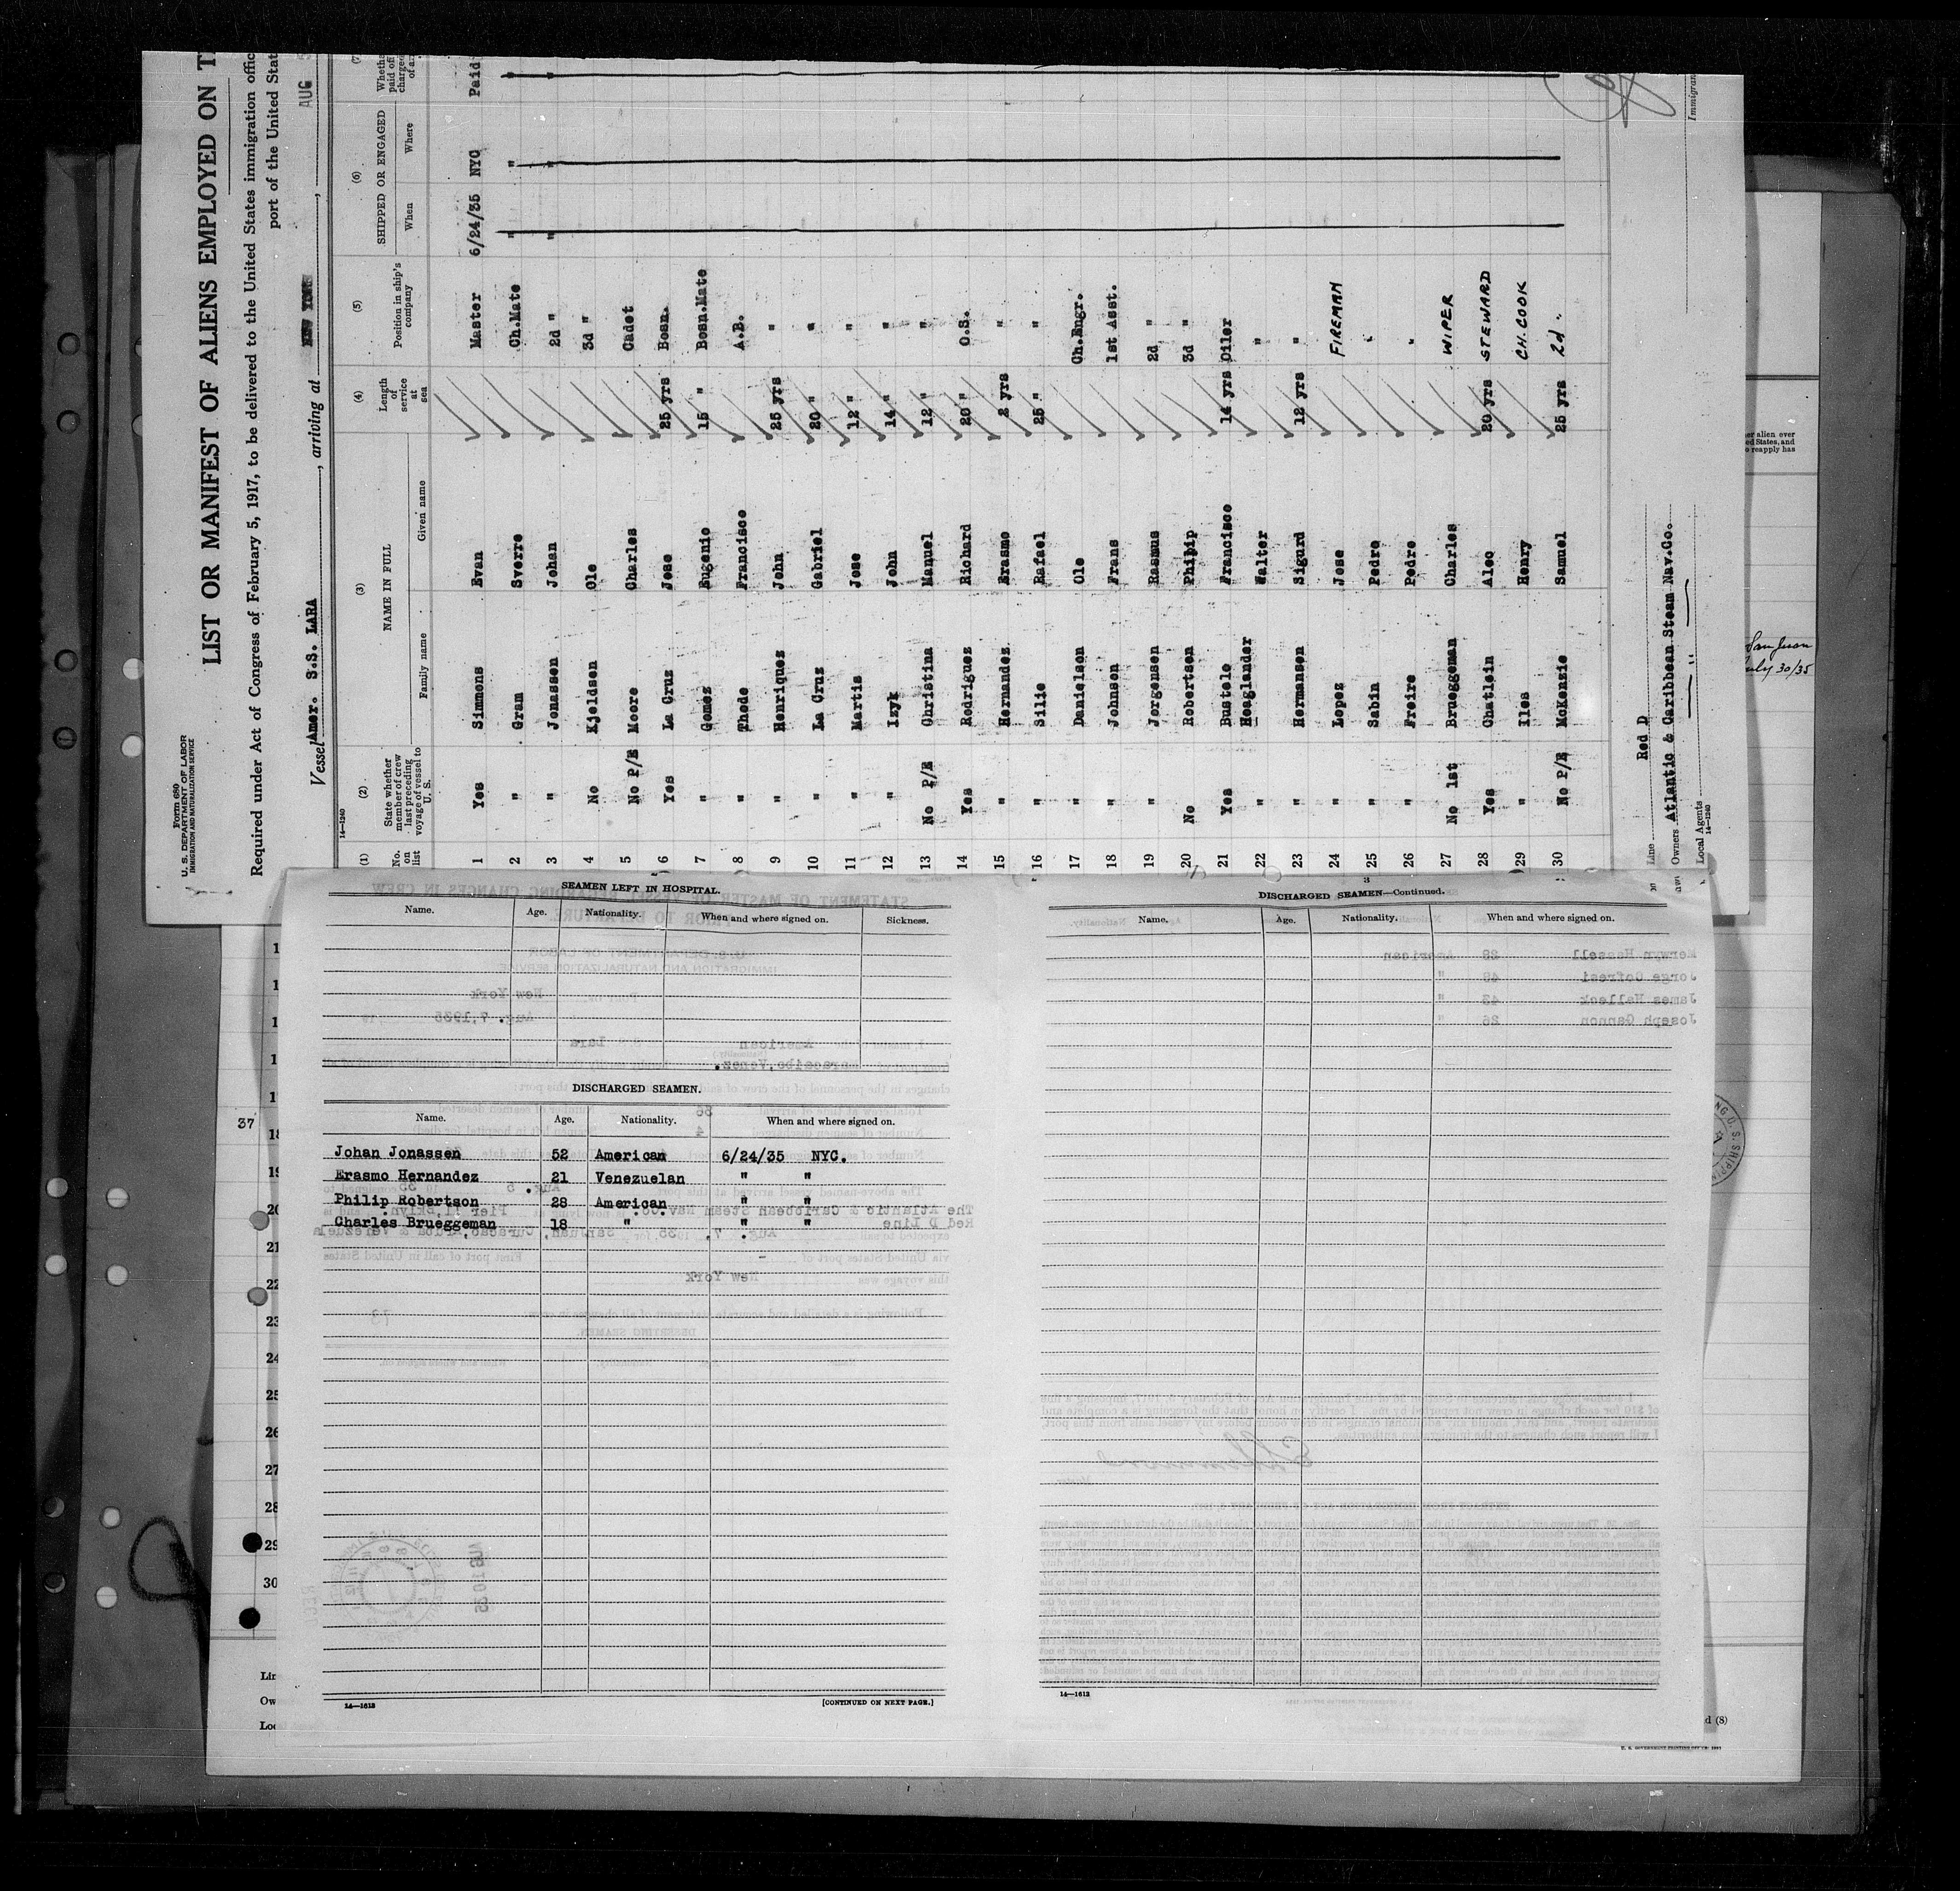 Form 680
U. S. DEPARTMENT OF LABOR
IMMIGRATION AND NATURALIZATION SERVICE
LIST OR MANIFEST OF ALIENS EMPLOYED ON T
Required under Act of Congress of February 5, 1917, to be delivered to the United States immigration offic
port of the United Stat
Vessel Amer. S.S. LARA, arriving at NEW YORK, AUG
14—1240
(1) (2) (3) (4) (5) (6) (7)
No. on list
State whether member of crew last preceding voyage of vessel to U. S.
NAME IN FULL
Family name Given name
Length of service at sea
Position in ship's company
SHIPPED OR ENGAGED
When Where
1 Yes Simmons Evan Master 6/24/35 NYC Paid
2 " Gram Sverre Ch.Mate " " "
3 " Jonassen Johan 2d " " " "
4 No Kjeldsen Ole 3d "
5 No P/E Moore Charles Cadet
6 Yes La Cruz Jose 25 yrs Bosn.
7 " Gomez Eugenio 15 " Bosn.Mate
8 " Thode Francisco A.B.
9 " Henriquez John 25 yrs "
10 " La Cruz Gabriel 20 " "
11 " Martis Jose 12 " "
12 " Izyk John 14 " "
13 No P/E Christina Manuel 12 " "
14 Yes Rodriguez Richard 20 " O.S.
15 " Hernandez Erasmo 2 yrs "
16 " Silie Rafael 25 " "
17 " Danielson Ole Ch.Engr.
18 " Johnson Frans 1st Asst.
19 " Jorgensen Rasmus 2d "
20 No Robertson Philip 3d "
21 Yes Bustelo Francisco 14 yrs Oiler
22 " Hoaglander Walter "
23 " Hermansen Sigurd 12 yrs "
24 " Lopez Jose FIREMAN
25 " Sabin Pedro "
26 " Freire Pedro "
27 No 1st Brueggeman Charles WIPER
28 Yes Chatlein Alec 20 yrs STEWARD
29 " Iles Henry CH. COOK
30 No P/E McKenzie Samuel 25 yrs 2d "
Line Red D
Owners Atlantic & Caribbean Steam Nav.Co.
Local Agents " 
14—1240
Immigran
er alien over
ed States, and
o reapply has
San Juan
July 30/35
SEAMEN LEFT IN HOSPITAL.
Name. Age. Nationality. When and where signed on. Sickness.
DISCHARGED SEAMEN.
Name. Age. Nationality. When and where signed on.
Johan Jonassen 52 American 6/24/35 NYC.
Erasmo Hernandez 21 Venezuelan " "
Philip Robertson 28 American " "
Charles Brueggeman 18 " " "
14—1612
[CONTINUED ON NEXT PAGE.]
3
DISCHARGED SEAMEN—Continued.
Name. Age. Nationality. When and where signed on.
14—1612
37
18
19
20
21
22
23
24
25
26
27
28
29
30
Lin
Ow
Loc
d (8)